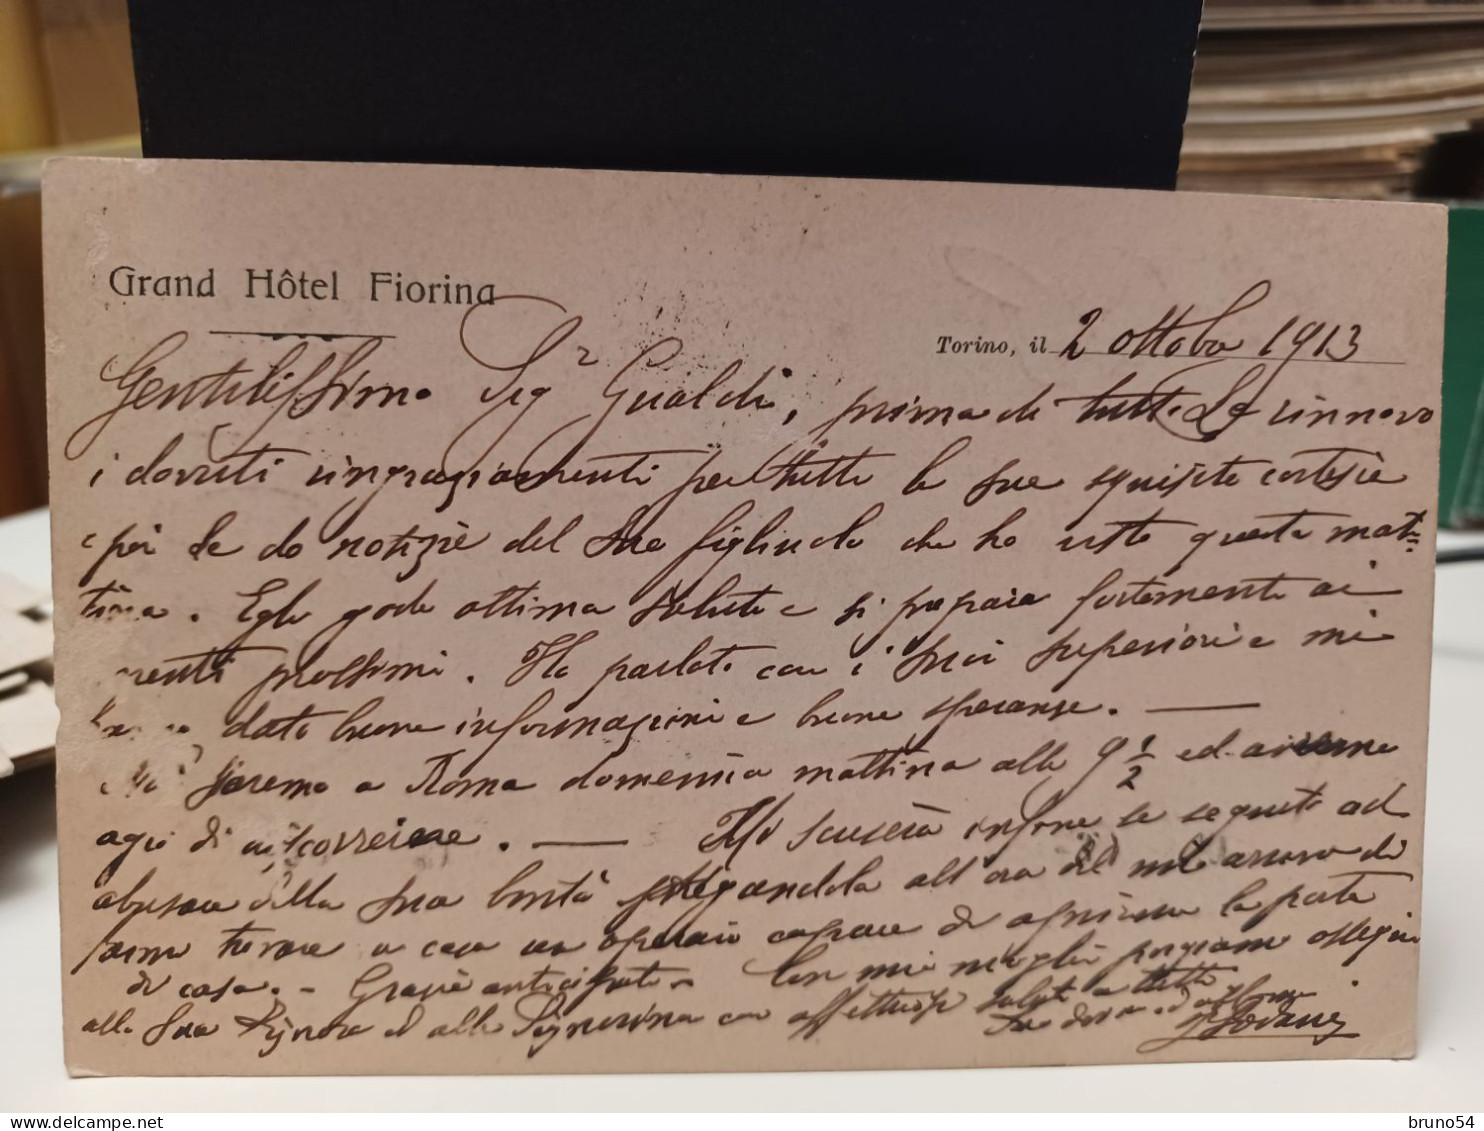 Grand Hôtel Fiorina
Torino, il 2 ottobre 1913
Gentilissimo Sigr Gualdi, prima di tutto Le rinnovo
i dovuti ringraziamenti per tutte le sue squisite cortesie
e poi Le do notizie del Suo figliuolo che ho visto questa mat=
tina. Egli gode ottima salute e si prepara fortemente ai
prossimi. Ho parlato con i suoi superiori e mi
dato buone informazioni e buone speranze. —
saremo a Roma domenica mattina alle 9 1/2 ed avremo
agio di discorrere. — Mi scuserà infine se seguito ad
abusare della sua bontà pregandola all'ora del mio arrivo di
farmi trovare a casa un operaio capace di aprirmi la porta
di casa. - Grazie anticipate - Con mia moglie porgiamo ossequi
alla Sua Signora ed alla Signorina con affettuosi saluti a tutti
Suo